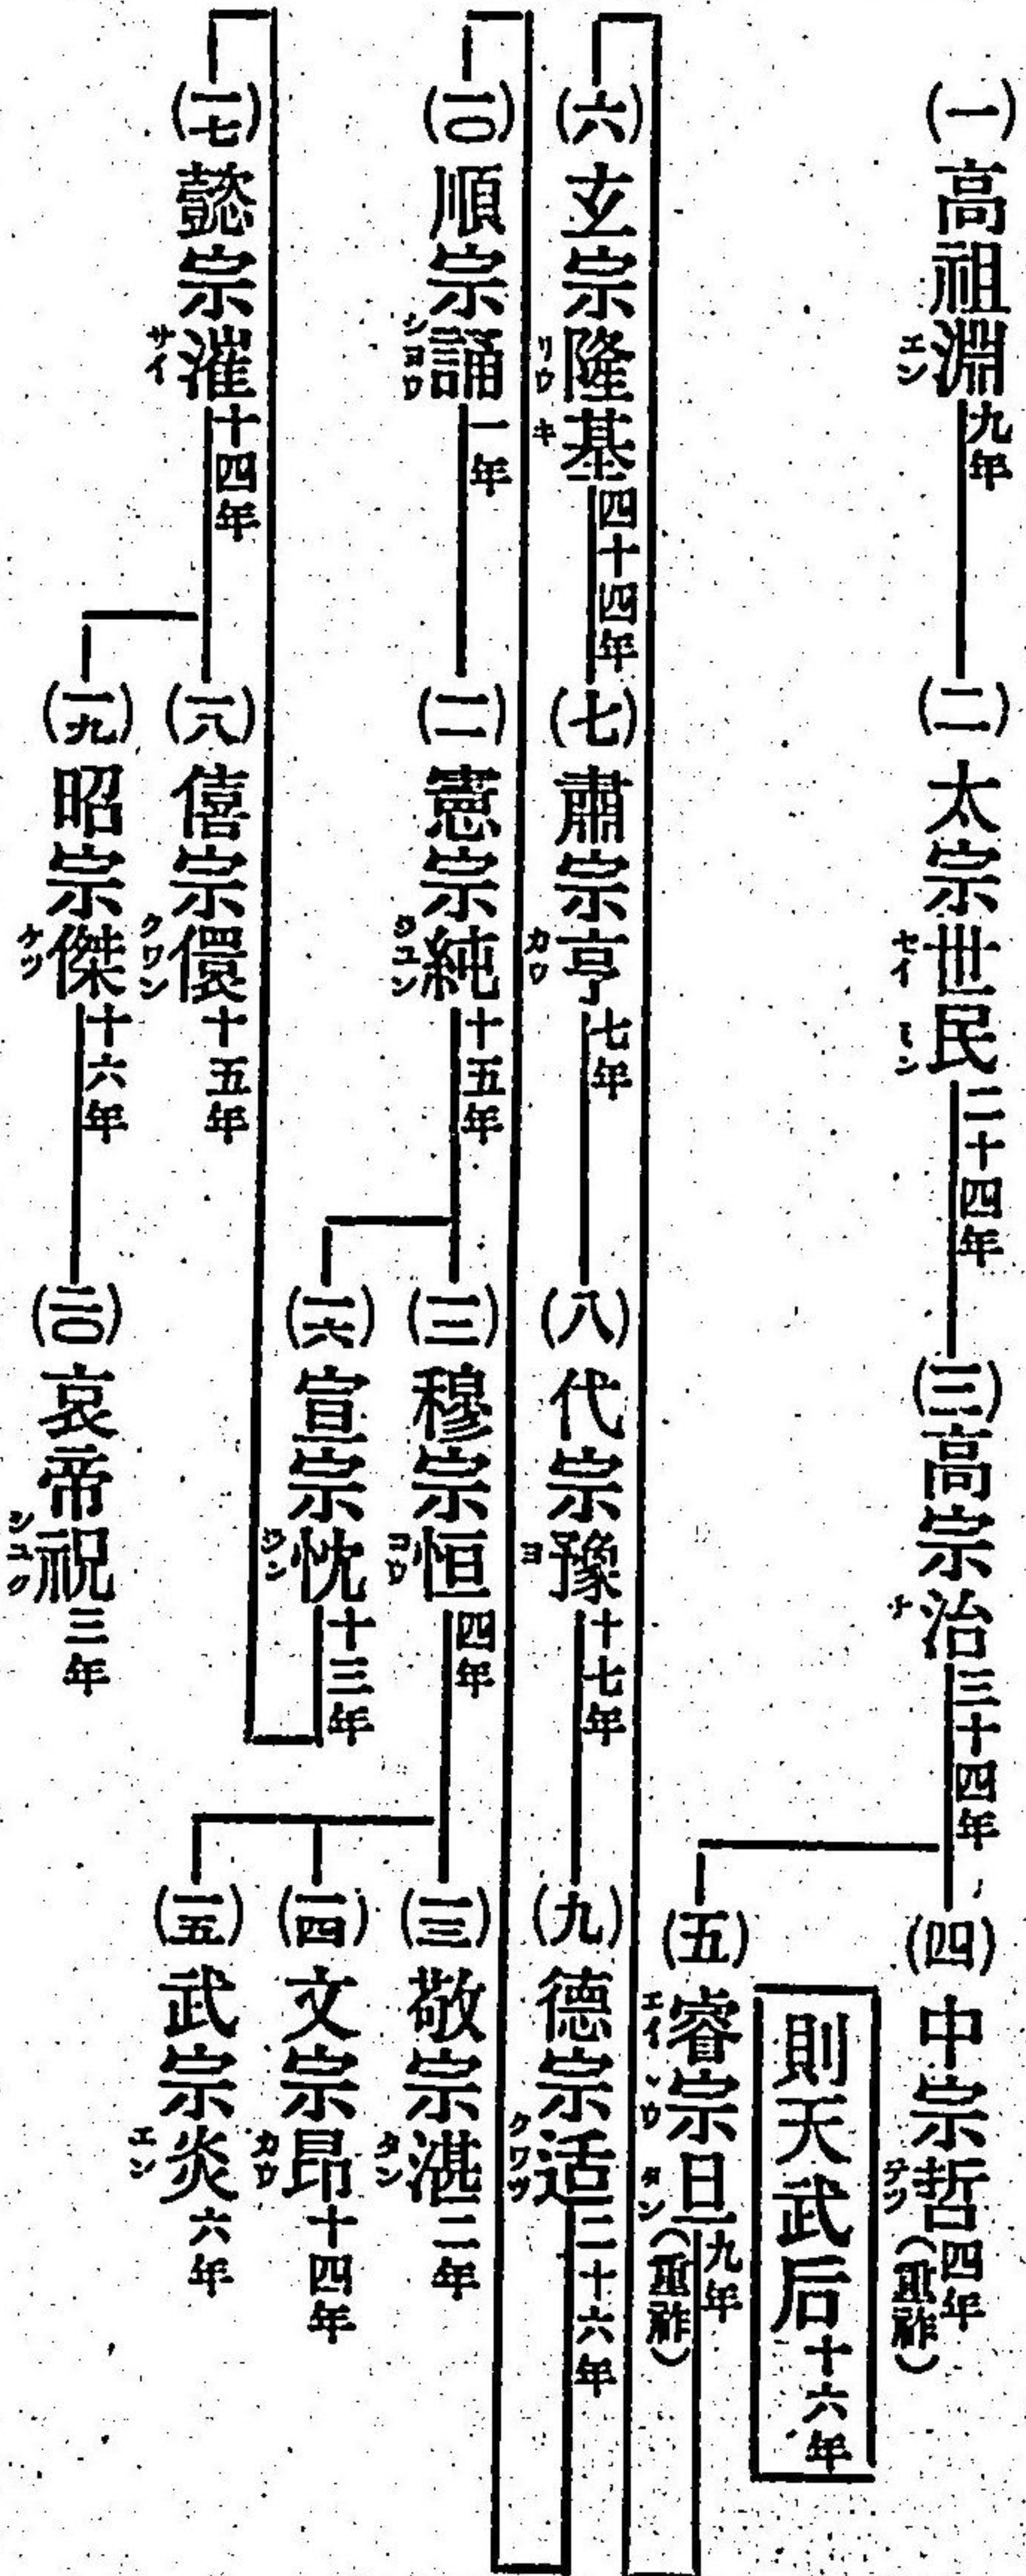 (一)高祖淵エン九年
(二)太宗世民セイミン二十四年
(三)高宗治チ三十四年
(四)中宗哲テツ四年(重祚)
則天武后十六年
(五)睿宗旦エイソウタン九年(重祚)
(六)玄宗隆基リウキ四十四年
(七)肅宗亨カウ七年
(八)代宗豫ヨ十七年
(九)德宗适クワツ二十六年
(一〇)順宗誦シヨウ一年
(一一)憲宗純ジユン十五年
(一二)穆宗恒コウ四年
(一三)敬宗湛タン二年
(一四)文宗昂カウ十四年
(一五)武宗炎エン六年
(一六)宣宗忱シン十三年
(一七)懿宗漼サイ十四年
(一八)僖宗儇クワン十五年
(一九)昭宗傑ケツ十六年
(二〇)哀帝祝シユク三年